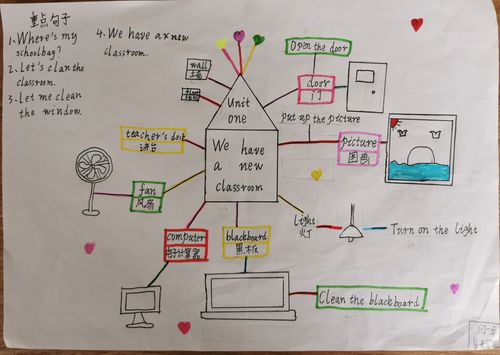 重点句子
1、Where's my
schoolbag?
2. Let's clan the
classroom.
3. Let me clean
the window.
4. We have a new
classroom.
Unit
one
We have
a new
classroom
wall
墙
Open the door
door
门
put up the picture
picture
图画
teacher's desk
讲台
fan
风扇
light
灯
Turn on the light
computer
电子计算器
blackboard
黑板
Clean the blackboard